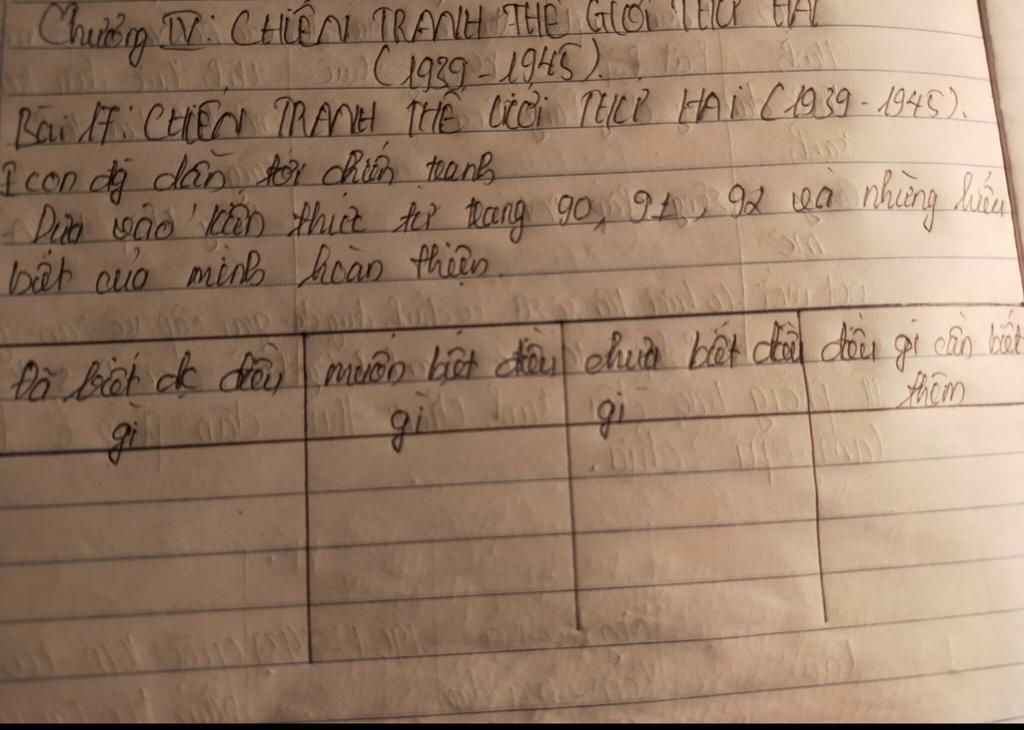 Chương IV: CHIẾN TRANH THẾ GIỚI THỨ HAI
(1939-1945).
Bài 17: CHIẾN TRANH THẾ GIỚI THỨ HAI (1939-1945).
I con đg dẫn tới chiến tranh
- Dựa vào kiến thức từ trang 90, 91, 92 và những hiểu
biết của mình hoàn thiện.
Đã biết đc điều
gì
muốn biết điều
gì
chưa biết điều
gì
điều gì cần biết
thêm